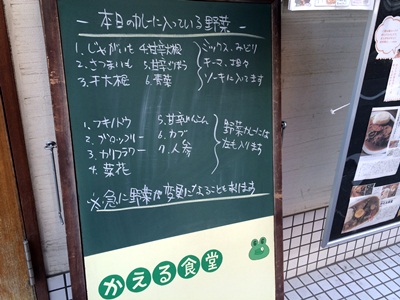 本日のカレーに入っている野菜
1.じゃがいも 4.甘辛大根
2.さつまいも 5.甘辛ごぼう
3.干大根 6.青菜
ミックス、みどり
キーマ、坦々
ソーキに入ってます
1.フキノトウ 5.甘辛れんこん
2.ブロッコリー 6.カブ
3.カリフラワー 7.人参
4.菜花
野菜カレーには
左も入ります
※急に野菜が変更になることもあります
かえる食堂